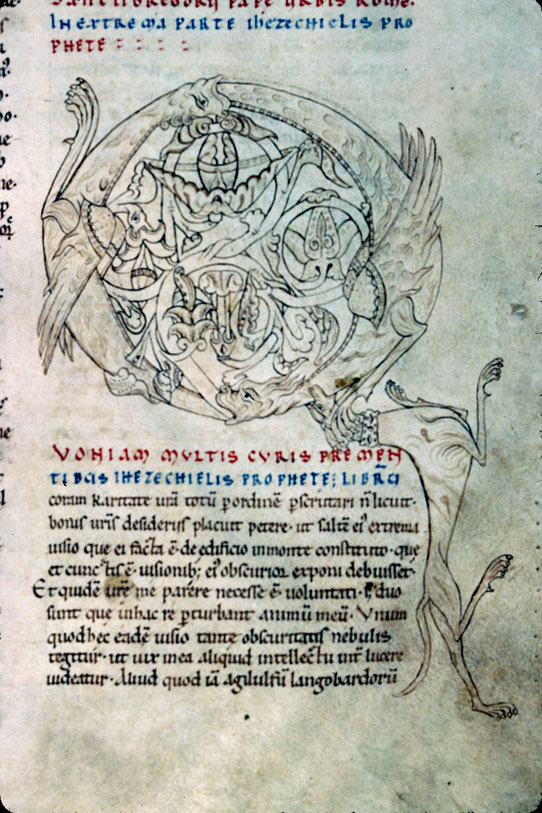 SANCTI GREGORII PAPE URBIS ROME.
IN EXTREMA PARTE IHEZECHIELIS PRO
PHETE
VONIAM MULTIS CURIS PREMEN
TIBUS IHEZECHIELIS PROPHETE; LIBRŪ
coram karitate urā totū p ordinē pscrutari n̄ licuit.
bonis uris desideriis placuit petere. ut saltē ei' extrema
uisio que ei facta ē. de edificio in monte constituto. que
et cunctis ē uisionib; ei' obscurior. exponi debuisset.
Et quidē urē me parere necesse ē uoluntati. s; duo
sunt que in hac re pturbant animū meū. Unum
quod hec eadē uisio tante obscuritatis nebulis
tegitur. ut uix in ea aliquid intellectu int lucere
uideatur. Aliud quod iā agilulfū langobardorū